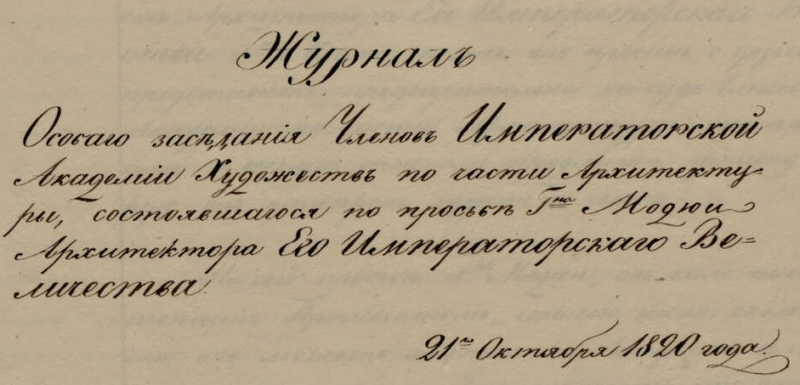 Журналъ
Особаго засѣданія Членовъ Императорской
Академіи Художествъ по части Архитекту-
ры, состоявшагося по просьбѣ Гна Модюи
Архитектора Его Императорскаго Ве=
личества.
21го Октября 1820 года.